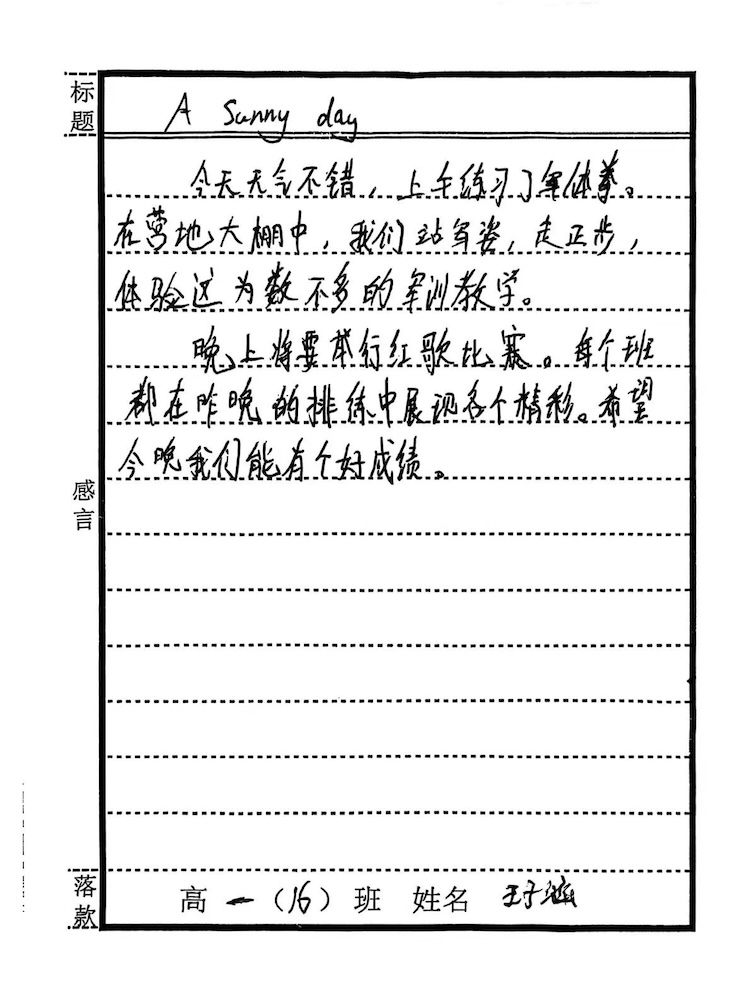 标题
A Sunny day
今天天气不错，上午练习了军体拳。
在营地大棚中，我们站军姿，走正步，
体验这为数不多的军训教学。
晚上将要举行红歌比赛。每个班
都在昨晚的排练中展现各个精彩。希望
今晚我们能有个好成绩。
感言
落款
高一（16）班 姓名 王子涵